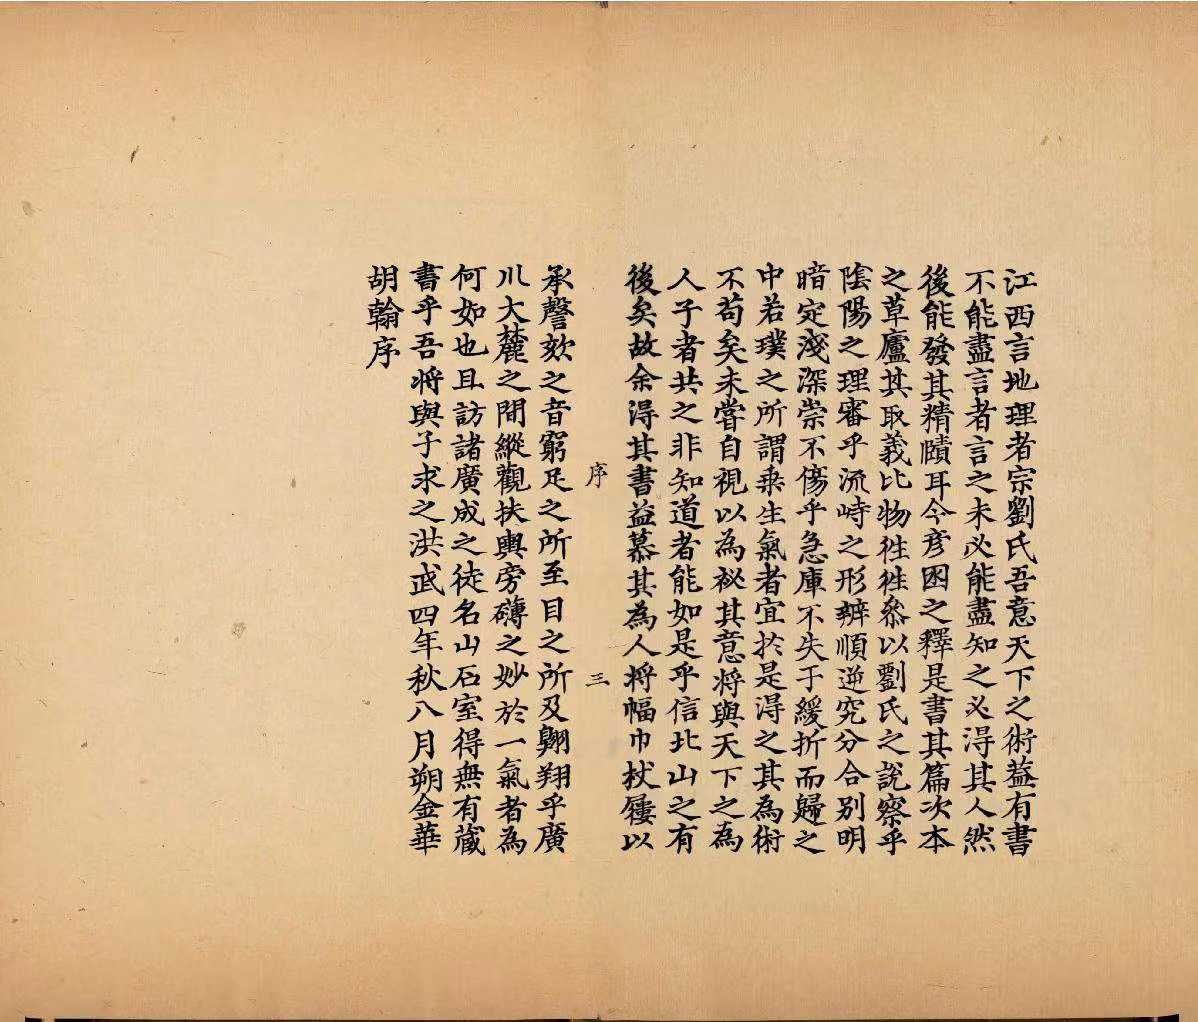 江西言地理者宗劉氏吾意天下之術葢有書
不能盡言者言之未必能盡知之必得其人然
後能發其精賾耳今彦困之釋是書其篇次本
之草廬其取義比物徃徃叅以劉氏之說察乎
陰陽之理審乎流峙之形辨順逆究分合别明
暗定淺深崇不傷乎急庳不失于緩折而歸之
中若璞之所謂乗生氣者宜於是得之其為術
不苟矣未嘗自視以為袐其意将與天下之為
人子者共之非知道者能如是乎信北山之有
後矣故余得其書益慕其為人将幅巾杖屨以
序
三
承謦欬之音窮足之所至目之所及翺翔乎廣
川大麓之間縱觀扶輿旁礴之妙於一氣者為
何如也且訪諸廣成之徒名山石室得無有蔵
書乎吾将與子求之洪武四年秋八月朔金華
胡翰序